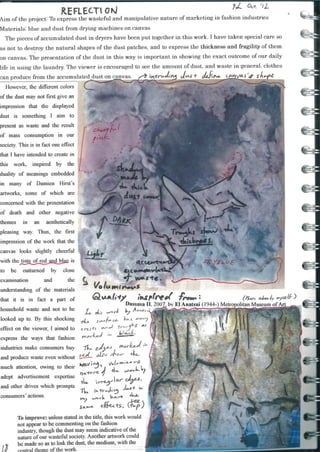 REFLECTION
12 Oct '12
Aim of the project: To express the wasteful and manipulative nature of marketing in fashion industries
Materials: blue and dust from drying machines on canvas
The pieces of accumulated dust in dryers have been put together in this work. I have taken special care so
as not to destroy the natural shapes of the dust patches, and to express the thickness and fragility of them
on canvas. The presentation of the dust in this way is important in showing the exact outcome of our daily
life in using the laundry. The viewer is encouraged to see the amount of dust, and waste in general, clothes
can produce from the accumulated dust on canvas.
intruding dust define canvas's shape
However, the different colors
of the dust may not first give an
impression that the displayed
dust is something I aim to
present as waste and the result
of mass consumption in our
society. This is in fact one effect
that I have intended to create in
this work, inspired by the
duality of meanings embedded
in many of Damien Hirst's
artworks, some of which are
concerned with the presentation
of death and other negative
themes in an aesthetically
pleasing way. Thus, the first
impression of the work that the
canvas looks slightly cheerful
with the tone of red and blue is
to be outturned by close
examination and the
understanding of the materials
that it is in fact a part of
household waste and not to be
looked up to. By this shocking
effect on the viewer, I aimed to
express the ways that fashion
industries make consumers buy
and produce waste even without
much attention, owing to their
adept advertisement expertise
and other drives which prompts
consumers' actions.
cheerful
pink
Shadow
made by
the thick
dust cover
DARK
Light
Troughs show the
thickness
accumulation
of waste
BLUE
Voluminous
Quality inspired from:
Dusasa II, 2007, by El Anatsui (1944-) Metropolitan Museum of Art
In this work by Anatsui
the surface has many
crests and troughs as
marked in black.
The edges marked in
red also show the
waving, voluminous
nature of the work by
the irregular edges.
The intruding dust in
my work have the
same effects. (see top)
To improve: unless stated in the title, this work would
not appear to be commenting on the fashion
industry, though the dust may seem indicative of the
nature of our wasteful society. Another artwork could
be made so as to link the dust, the medium, with the
central theme of the work.